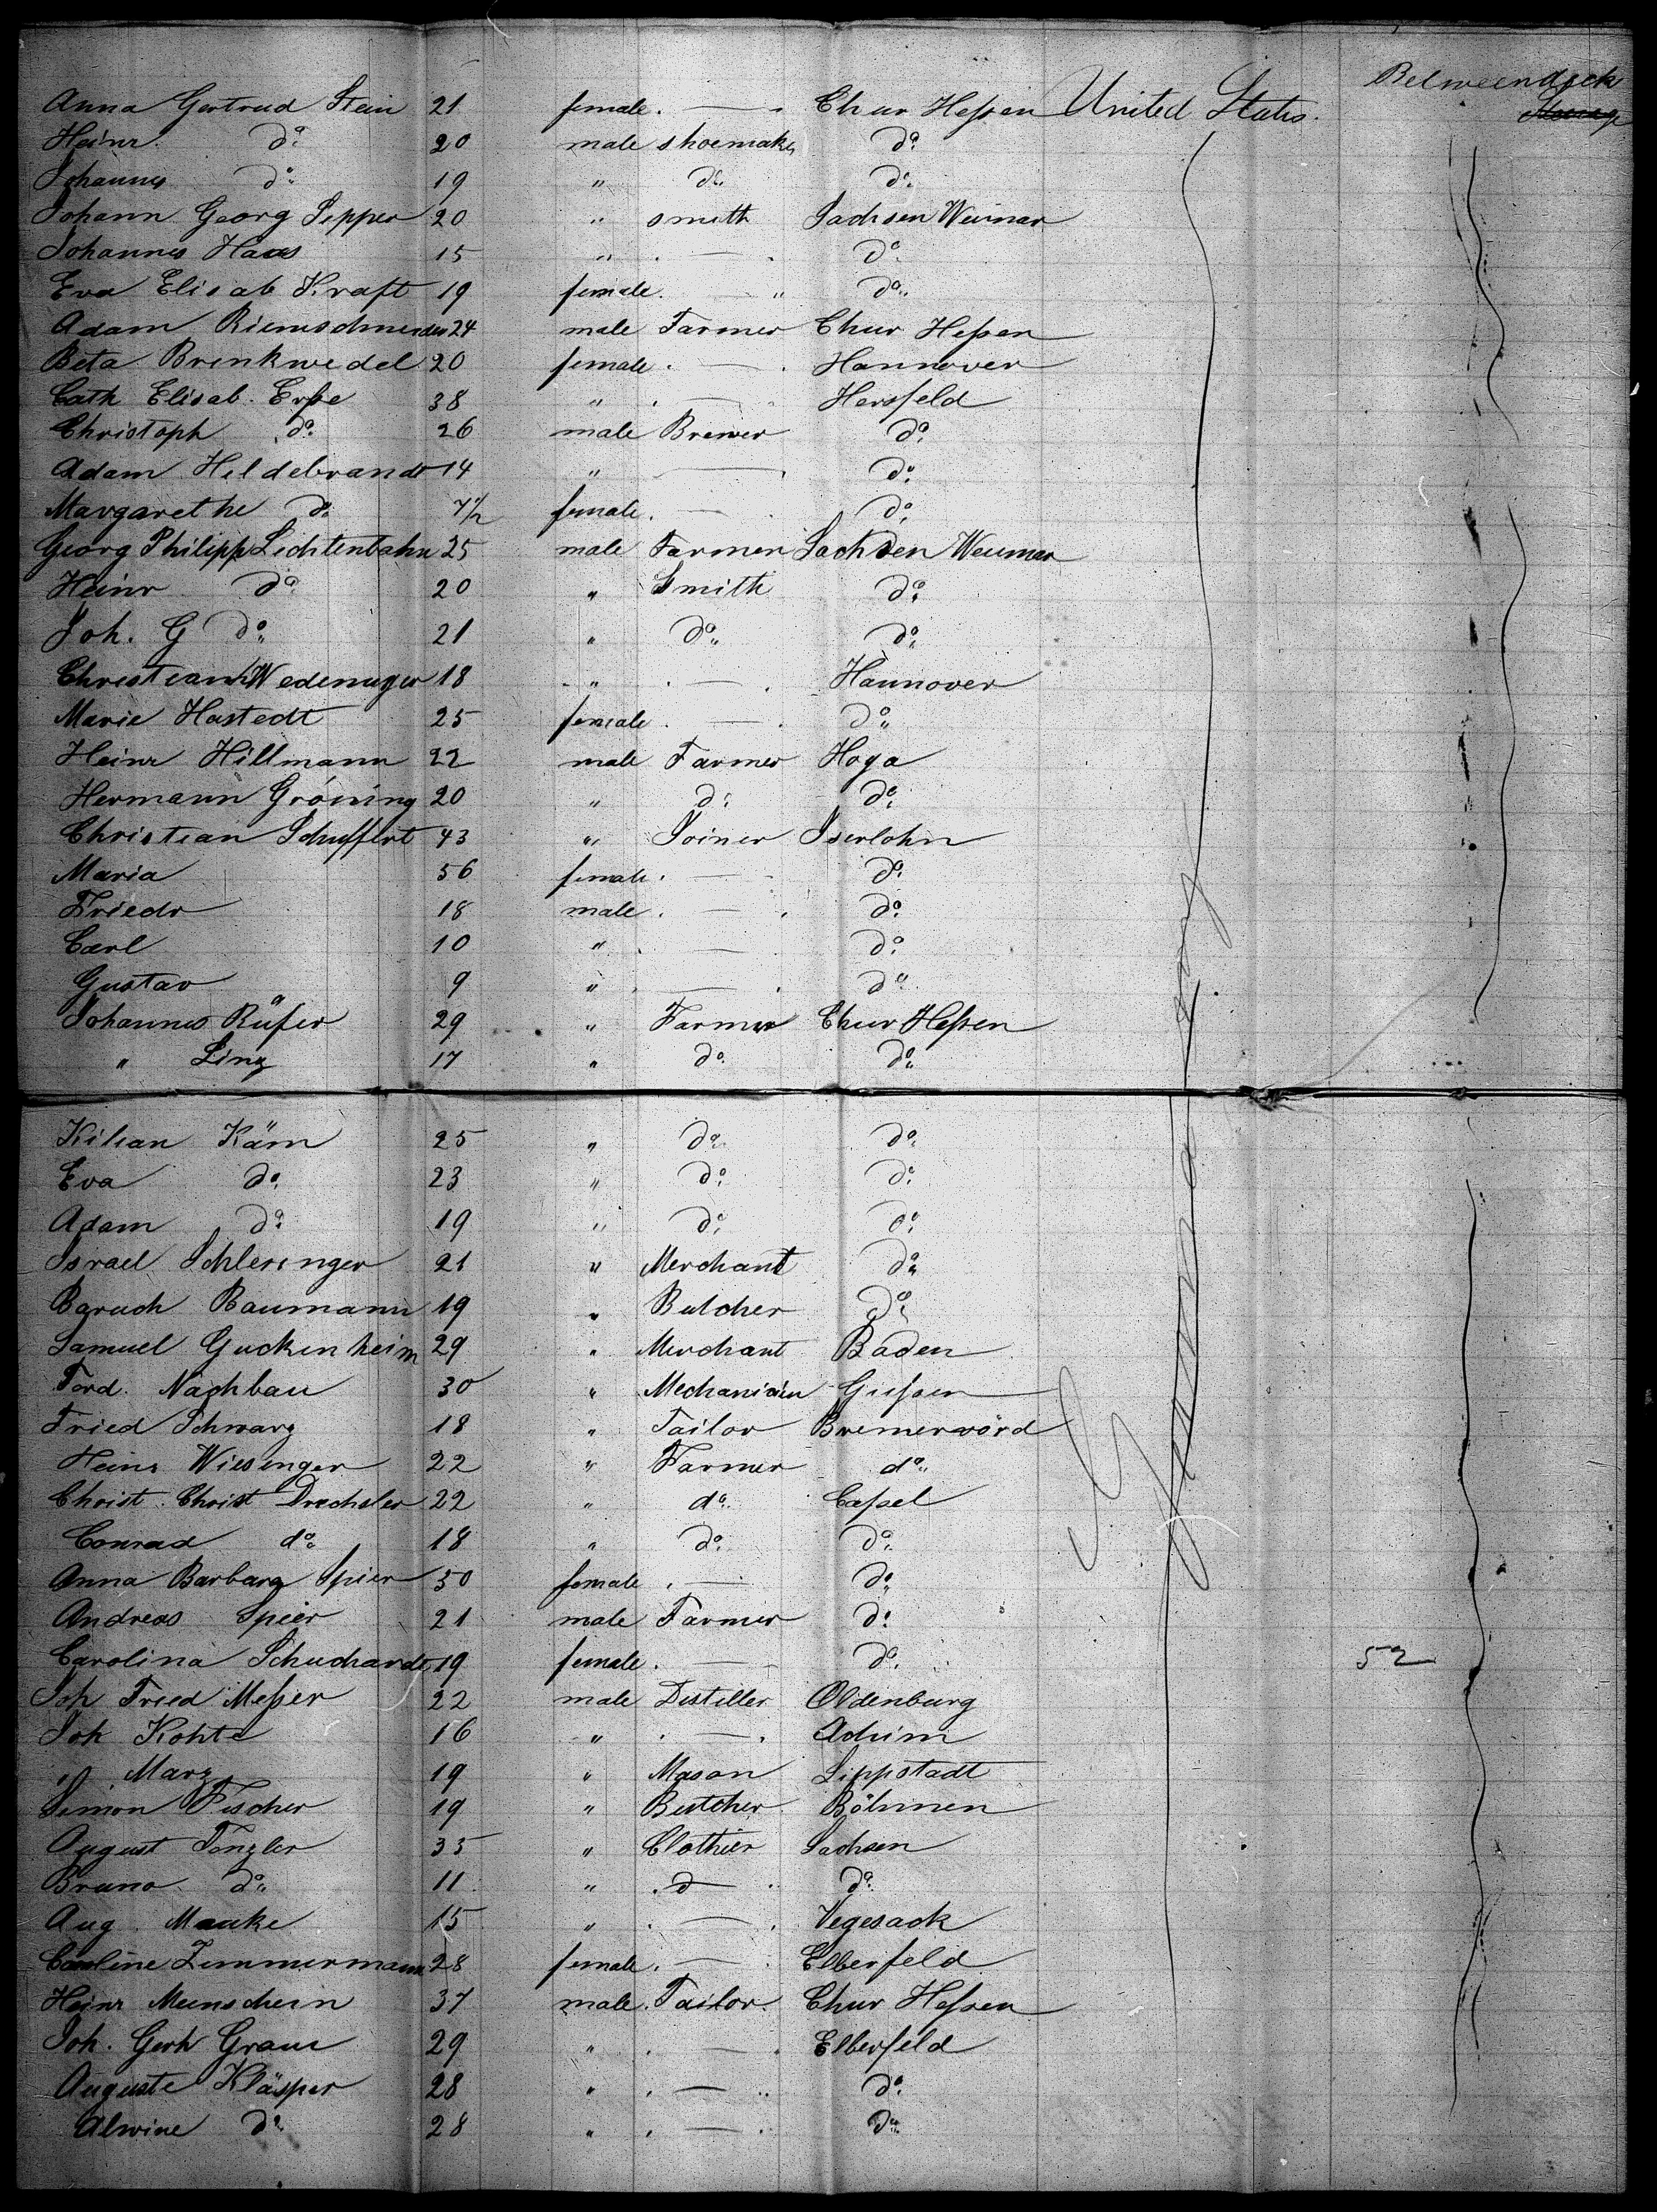 Betweendeck
Anna Gertrud Stein 21 female . — . Chur Hessen United States. Steerage
Heinr. do. 20 male shoemaker do.
Johannes do. 19 " do. do.
Johann Georg Pepper 20 " smith Sachsen Weimar
Johannes Haas 15 " . — . do.
Eva Elisab Kraft 19 female . — " do.
Adam Riemschneider 24 male Farmer Chur Hessen
Beta Brinkwedel 20 female . — . Hannover
Cath Elisab. Erbe 38 " . — . Hersfeld
Christoph do. 26 male Brewer do.
Adam Hildebrandt 14 " — . do.
Margarethe do. 7 1/2 female . — . do.
Georg Philipp Lichtenbahn 25 male Farmer Sachsen Weimar
Heinr do. 20 " Smith do.
Joh. G do. 21 " do. do.
Christian Wedemeyer 18 " . — . Hannover
Marie Hastedt 25 female . — . do.
Heinr Hillmann 22 male Farmer Hoya
Hermann Gröning 20 " do. do.
Christian Schuffert 43 " Joiner Iserlohn
Maria 56 female . — . do.
Friedr 18 male . — . do.
Carl 10 " . — do.
Gustav 9 " . — . do.
Johannes Rüfer 29 " Farmer Chur Hessen
" Ling 17 " do. do.
Kilian Käm 25 " do. do.
Eva do. 23 " do. do.
Adam do. 19 " do. do.
Israel Schlesinger 21 " Merchant do.
Baruch Baumann 19 " Butcher do.
Samuel Guckenheim 29 " Merchant Baden
Ferd. Nachbau 30 " Mechanician Giessen
Fried Schwarz 18 " Tailor Bremervörd
Heinr Wiesinger 22 " Farmer do.
Christ. Christ Drechsler 22 " do. Cassel
Conrad do. 18 " do. do.
Anna Barbara Spier 50 female . — do.
Andreas Spier 21 male Farmer do.
Carolina Schuchardt 19 female . — do. 52
Joh Fried Messer 22 male Distiller Oldenburg
Joh Kohte 16 " . — . Achim
" Marz 19 " Mason Lippstadt
Simon Fischer 19 " Butcher Böhmen
August Tenzler 35 " Clothier Sachsen
Bruno do. 11 " . — . do.
Aug. Mauke 15 " . — . Vegesack
Caroline Zimmermann 28 female . — . Elberfeld
Heinr Meinschein 37 male . Tailor . Chur Hessen
Joh. Gerh Graue 29 " . — . Elberfeld
Auguste Kläsper 28 " . — .. do.
Alwine do. 28 " . — . do.
Germany